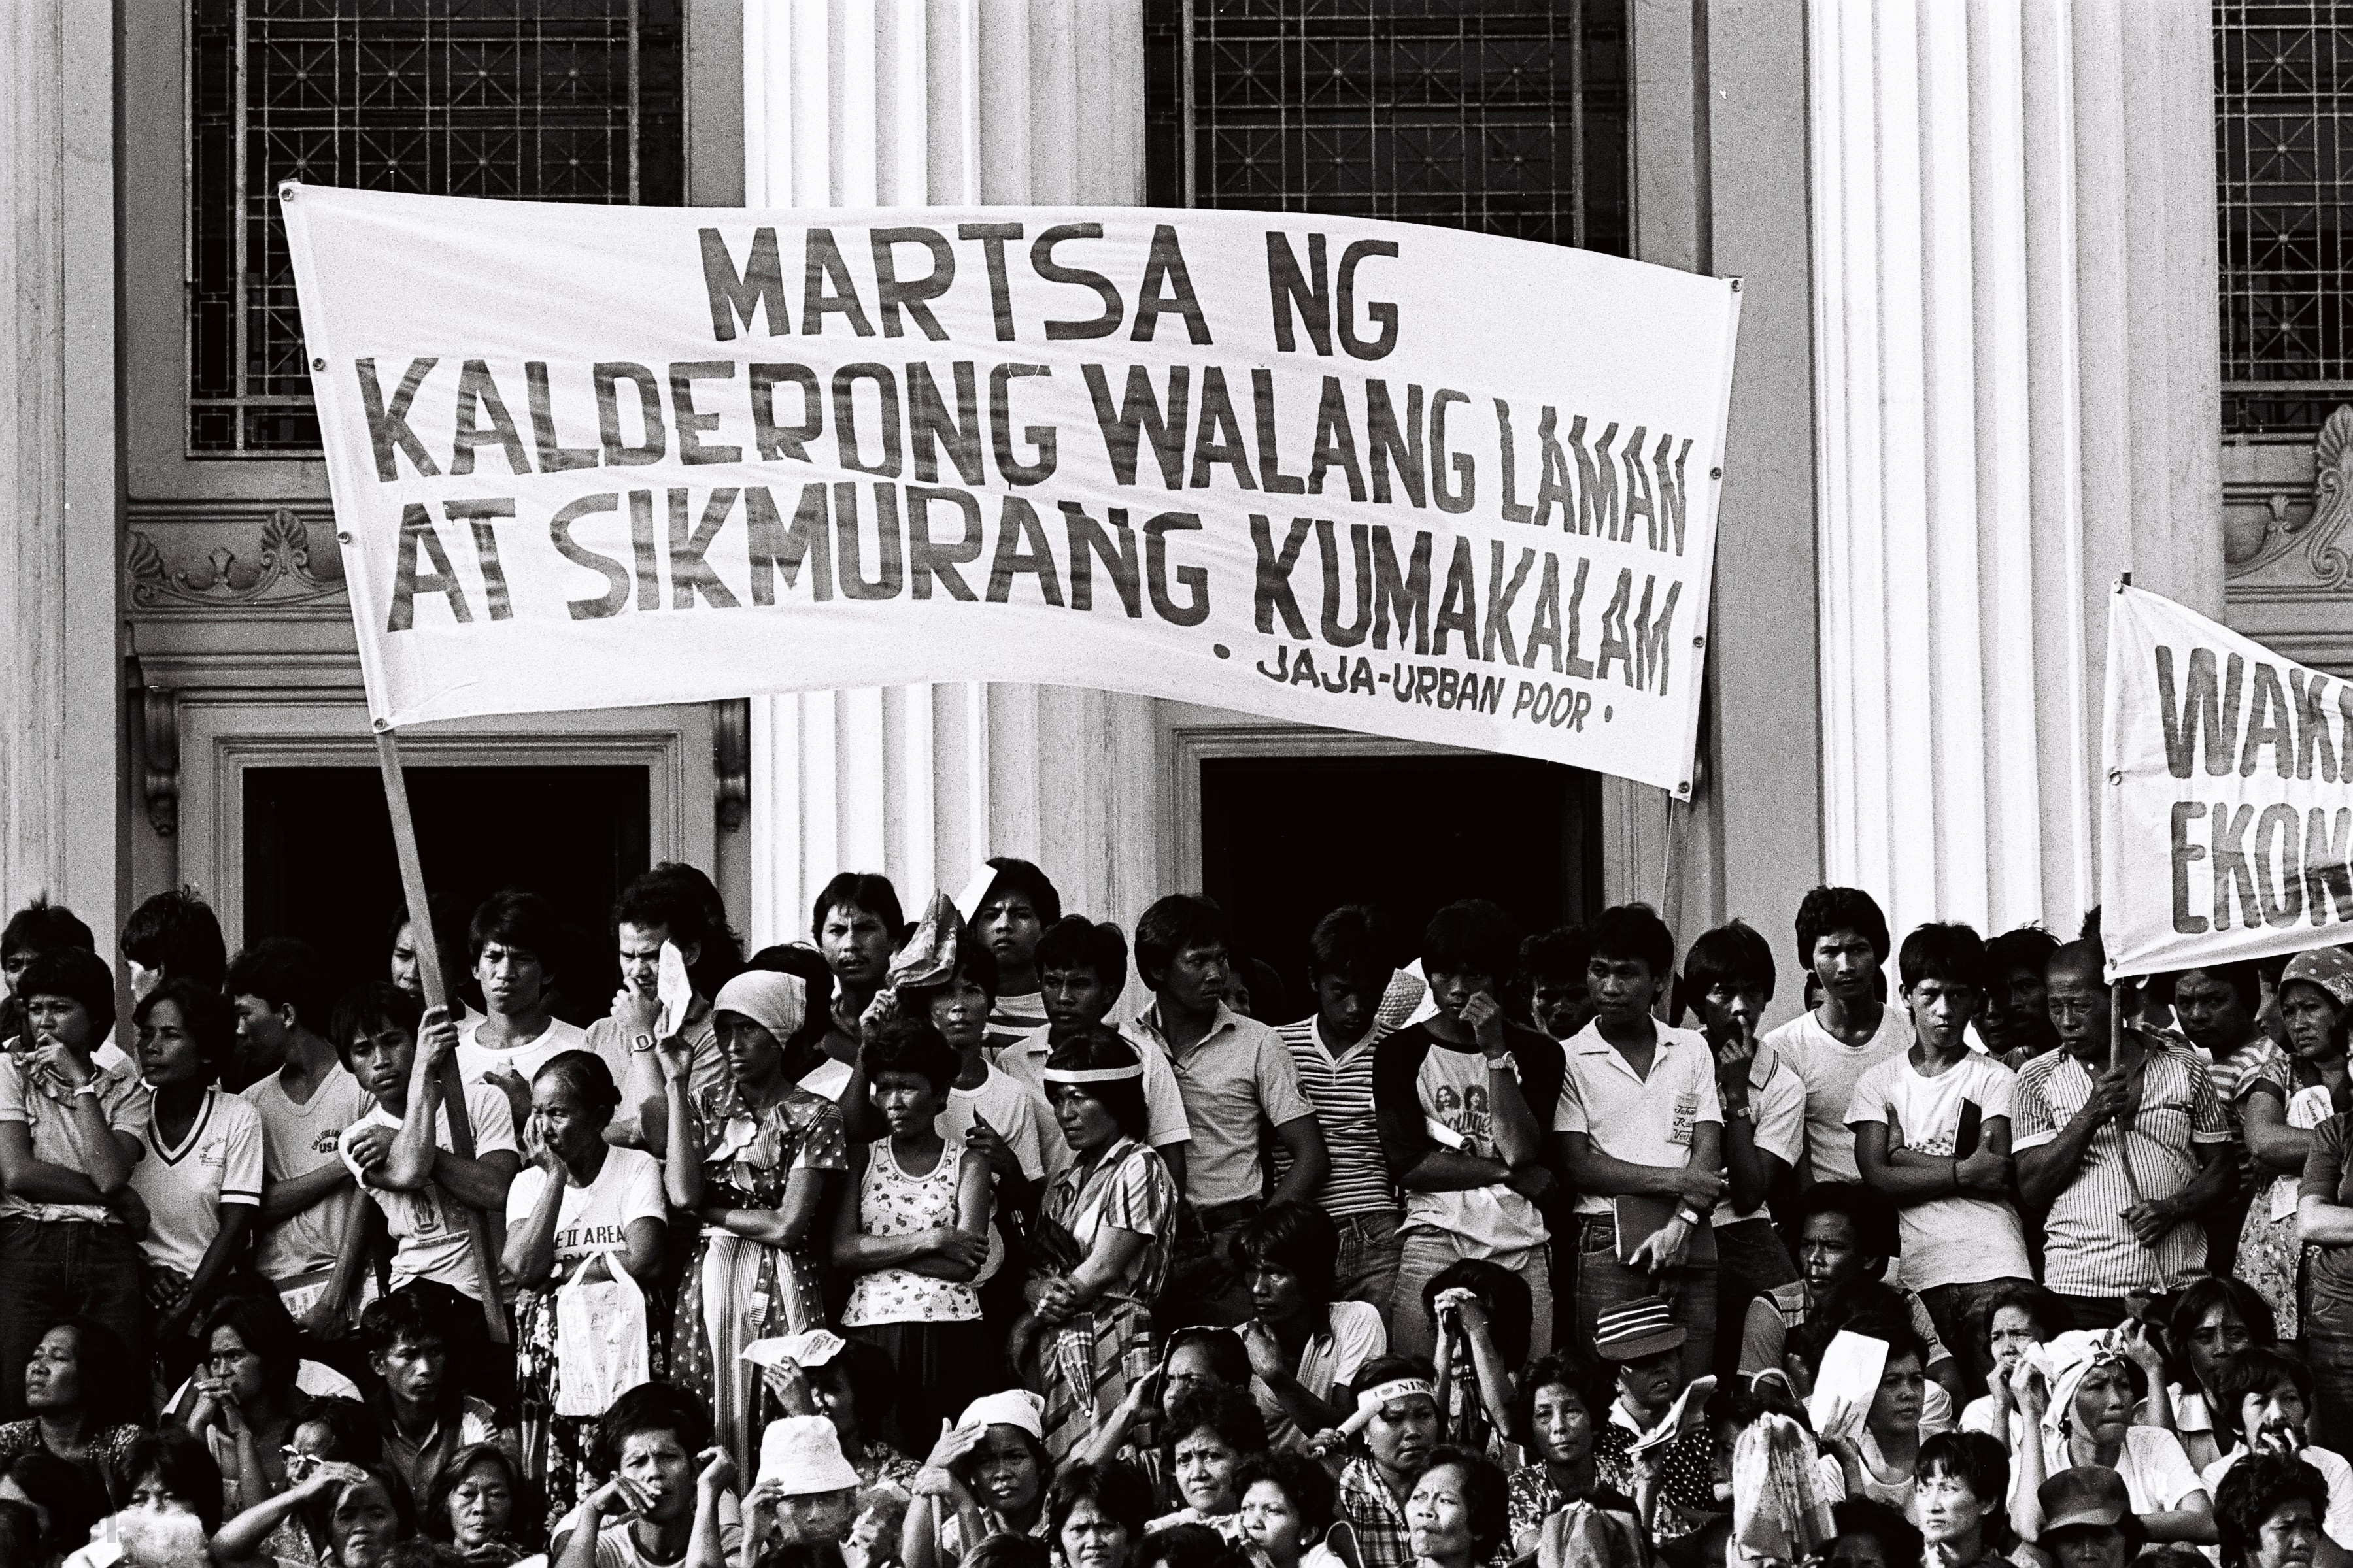 MARTSA NG
KALDERONG WALANG LAMAN
AT SIKMURANG KUMAKALAM
• JAJA-URBAN POOR •
WAK
EKON
USA
E II AREA
I ♥ NIN